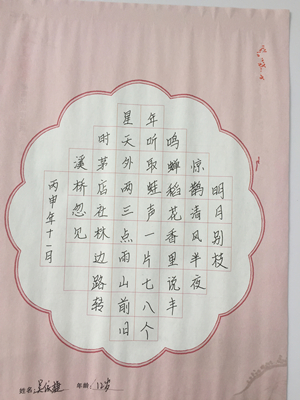 明月别枝
惊鹊清风半夜
鸣蝉稻花香里说丰
年听取蛙声一片七八个
星天外两三点雨山前旧
时茅店社林边路转
溪桥忽见
丙申年十一月
姓名:吴 年龄:12岁